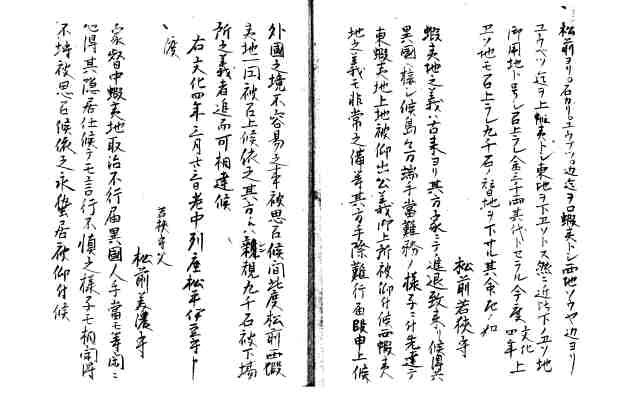 松前ヨリ石カリユウフツ口辺迄ヲ口蝦夷ト云西地ソウヤ辺ヨリ
ユウベツ迄ヲ上蝦夷ト云東地ヲ下ユウト云然ニ近比下ユウ地
御用地ト号シ召上ラレ金三千両其代トセラル今度文化四年上
ユウ地モ召上ラレ九千石ノ替地ヲ下サル其命如
松前若狭守
蝦夷地之義ハ古来ヨリ其方家ニテ進退致来リ候得共
異国ヘ接シ候島々万端手当難勝ノ様子ニ付先達テ
東蝦夷地上地被仰出公義御上所被仰付候西蝦夷
地之義モ非常之備等其方手際難行届段申上候
外國之境不容易之事被思召候間此度松前西蝦
夷地一円被召上候依之其方ヘハ新規九千石被下場
所之義者追而可相達候
右文化四年三月廿二日老中列座松平伊豆守
渡
若狭守父
松前美濃守
家督中蝦夷地取治不行届異國人手当モ等閑ニ
心得其隠居仕候テモ言行不慎之様子モ相聞得
不埒被思召候依之永蟄居被仰付候